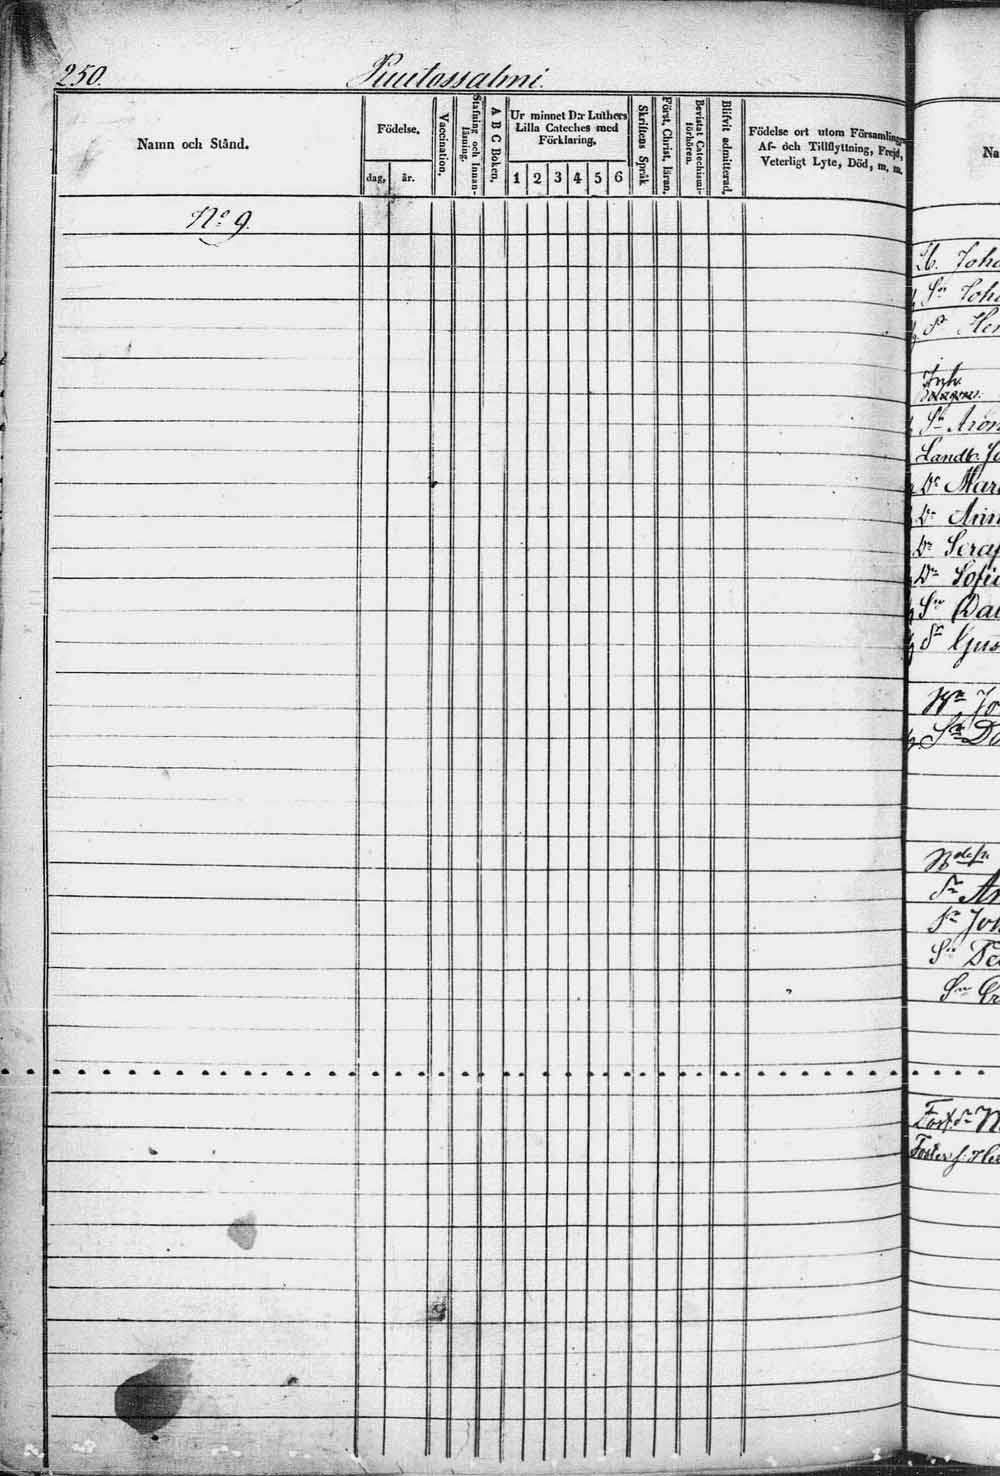 250. Puutossalmi.
Namn och Stånd.
Födelse,
dag,
år.
Vaccination,
Stafning och Innan-
läsning.
A B C Boken,
Ur minnet D:r Luthers
Lilla Cateches med
Förklaring,
1 2 3 4 5 6
Skriftens Språk
Först. Christ. läran,
Bevistat Catechismi-
förhören.
Blifvit admitterad,
Födelse ort utom Församlingen
Af- och Tillflyttning, Frejd,
Veterligt Lyte, Död, m. m.
N:o 9.
Na
Lb. Joha
Sn Joha
Sn Hen
Inh.
Sn Aron
Landb. Jo
Dr Mari
Dr Ann
Dr Seraf
Dr Sofia
Sn Dav
Sn Gus
Jo
Sn Da
Sn An
Sn Joh
Sn
Sn Gr